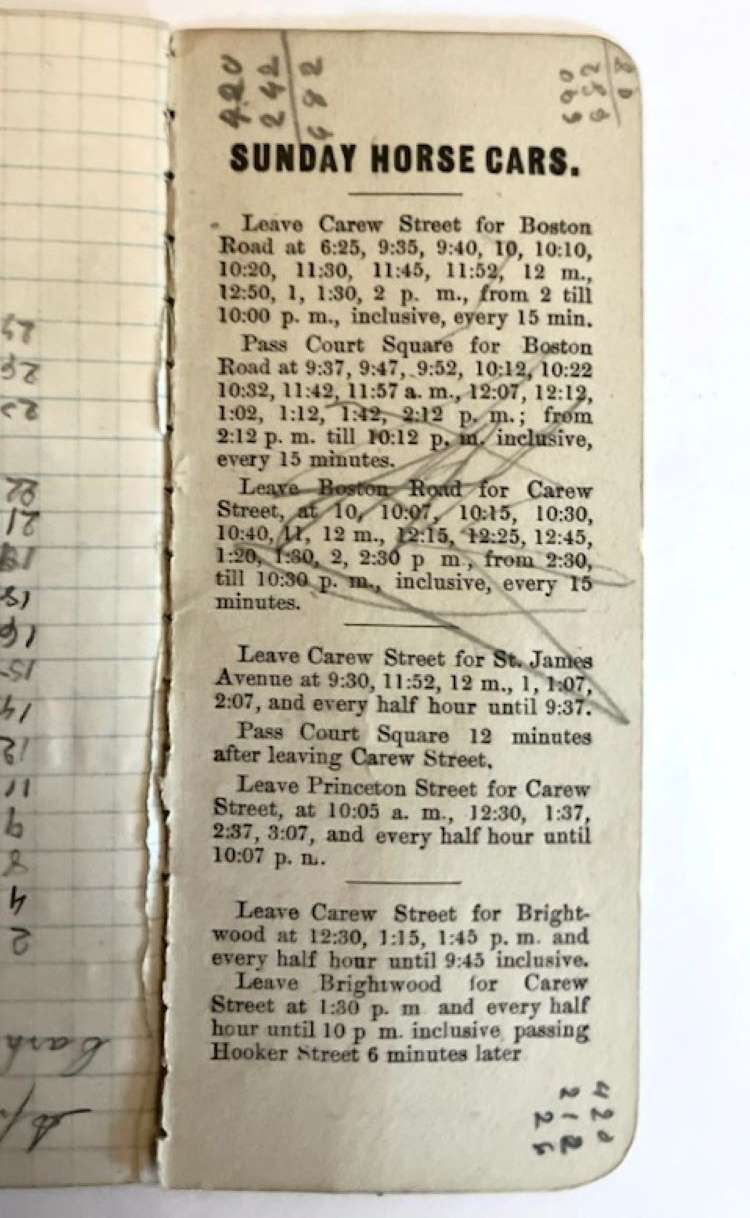 420
242
482
SUNDAY HORSE CARS.
Leave Carew Street for Boston
Road at 6:25, 9:35, 9:40, 10, 10:10,
10:20, 11:30, 11:45, 11:52, 12 m.,
12:50, 1, 1:30, 2 p. m., from 2 till
10:00 p. m., inclusive, every 15 min.
Pass Court Square for Boston
Road at 9:37, 9:47, 9:52, 10:12, 10:22
10:32, 11:42, 11:57 a. m., 12:07, 12:12,
1:02, 1:12, 1:42, 2:12 p. m.; from
2:12 p. m. till 10:12 p. m. inclusive,
every 15 minutes.
Leave Boston Road for Carew
Street, at 10, 10:07, 10:15, 10:30,
10:40, 11, 12 m., 12:15, 12:25, 12:45,
1:20, 1:30, 2, 2:30 p m, from 2:30,
till 10:30 p. m., inclusive, every 15
minutes.
Leave Carew Street for St. James
Avenue at 9:30, 11:52, 12 m., 1, 1:07,
2:07, and every half hour until 9:37.
Pass Court Square 12 minutes
after leaving Carew Street.
Leave Princeton Street for Carew
Street, at 10:05 a. m., 12:30, 1:37,
2:37, 3:07, and every half hour until
10:07 p. m.
Leave Carew Street for Bright-
wood at 12:30, 1:15, 1:45 p. m. and
every half hour until 9:45 inclusive.
Leave Brightwood for Carew
Street at 1:30 p. m and every half
hour until 10 p m. inclusive passing
Hooker Street 6 minutes later
420
212
2
4
8
9
11
12
14
15
16
18
21
22